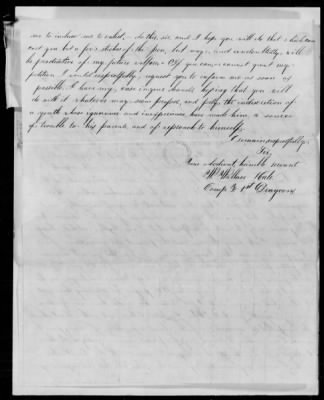 me to induce me to enlist. Do this, sir, and I hope you will do that which can
cost you but a few strokes of the pen, but may, and undoubtedly will
be productive of my future welfare. If you can or cannot grant my
petition I would respectfully, request you to inform me as soon as
possible. I leave my case in your hands, hoping that you will
do with it whatever may seem proper, and pity the indiscretion of
a youth whose ignorance and inexperience have made him, a source
of trouble to his parents and of reproach to himself.
I remain, respectfully
Sir,
Your obedient, humble servant
Wm Wallace
Comp 1st Dragoons